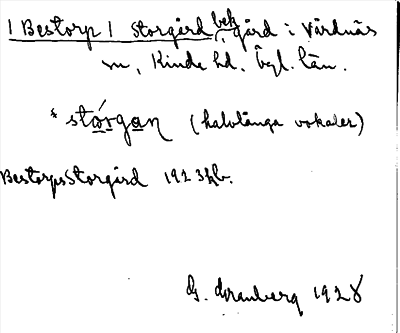 | Bestorp | Storgård bek gård i Vårdnäs
sn, Kinda hd. Ögl. län.
* stórgan (halvlånga vokaler)
Bestorps Storgård 1923 hb.
G. Granberg 1928